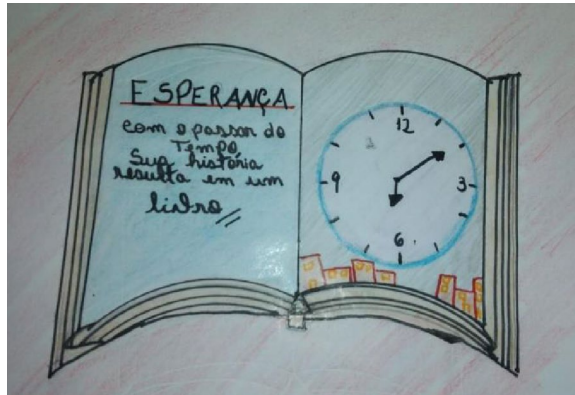 ESPERANÇA
com o passar do
Tempo,
Sua história
resulta em um
livro
12
9
3
6